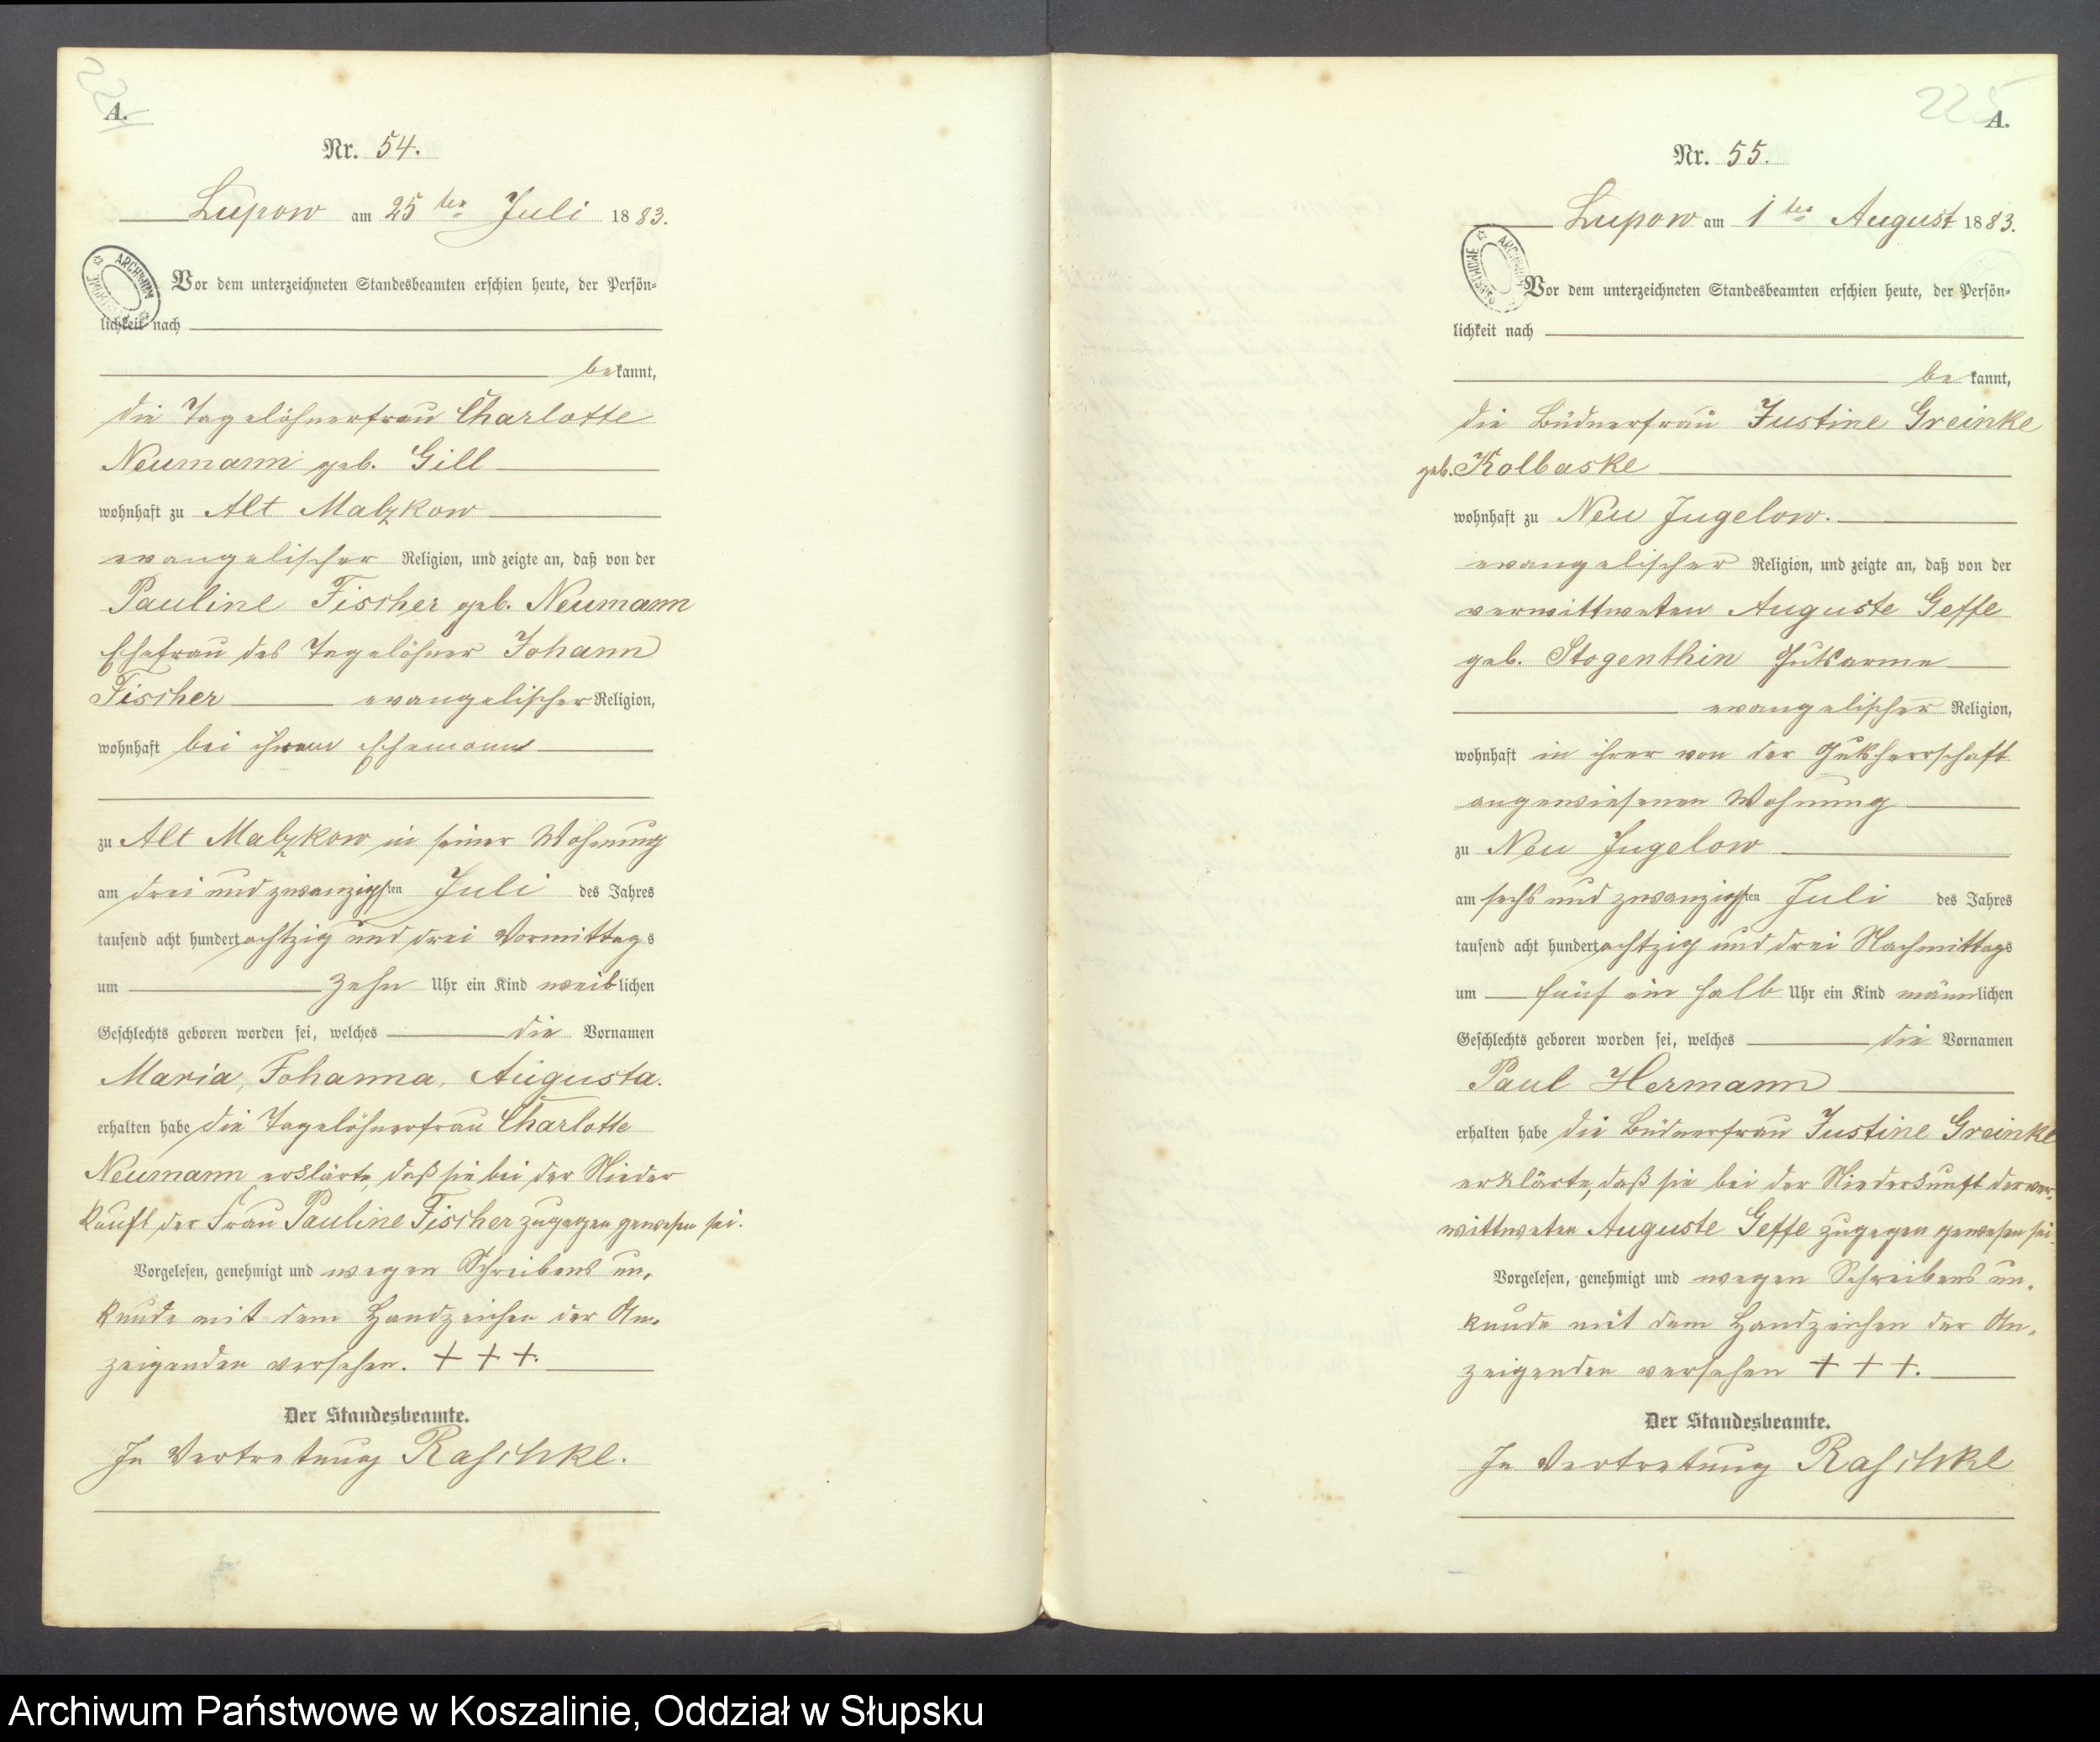 A.
Nr. 54.
Lupow am 25ten Juli 1883.
Vor dem unterzeichneten Standesbeamten erschien heute, der Persön-
lichkeit nach
bekannt,
die Tagelöhnerfrau Charlotte
Neumann geb. Gill
wohnhaft zu Alt Malzkow
evangelischer Religion, und zeigte an, daß von der
Pauline Fischer geb. Neumann
Ehefrau des Tagelöhner Johann
Fischer evangelischer Religion,
wohnhaft bei ihrem Ehemann
zu Alt Malzkow in seiner Wohnung
am drei und zwanzigsten Juli des Jahres
tausend acht hundert achtzig und drei Vormittags
um zehn Uhr ein Kind weiblichen
Geschlechts geboren worden sei, welches die Vornamen
Maria, Johanna, Augusta.
erhalten habe die Tagelöhnerfrau Charlotte
Neumann erklärte, daß sie bei der Nieder
kunft der Frau Pauline Fischer zugegen gewesen sei.
Vorgelesen, genehmigt und wegen Schreibens un-
kunde mit dem Handzeichen der An-
zeigenden versehen. + + +.
Der Standesbeamte.
In Vertretung Raschke.
225
A.
Nr. 55.
Lupow am 1ten August 1883.
Vor dem unterzeichneten Standesbeamten erschien heute, der Persön-
lichkeit nach
bekannt,
die Büdnerfrau Justine Greinke
geb. Kolbaske
wohnhaft zu Neu Jugelow.
evangelischer Religion, und zeigte an, daß von der
verwittweten Auguste Geffe
geb. Stogenthin Gutsarme
evangelischer Religion,
wohnhaft in ihrer von der Gutsherrschaft
angewiesenen Wohnung
zu Neu Jugelow
am sechs und zwanzigsten Juli des Jahres
tausend acht hundert achtzig und drei Nachmittags
um fünf ein halb Uhr ein Kind männlichen
Geschlechts geboren worden sei, welches die Vornamen
Paul Hermann
erhalten habe die Büdnerfrau Justine Greinke
erklärte, daß sie bei der Niederkunft der ver-
wittweten Auguste Geffe zugegen gewesen sei.
Vorgelesen, genehmigt und wegen Schreibens un-
kunde mit dem Handzeichen der An-
zeigenden versehen + + +.
Der Standesbeamte.
In Vertretung Raschke
Archiwum Państwowe w Koszalinie, Oddział w Słupsku